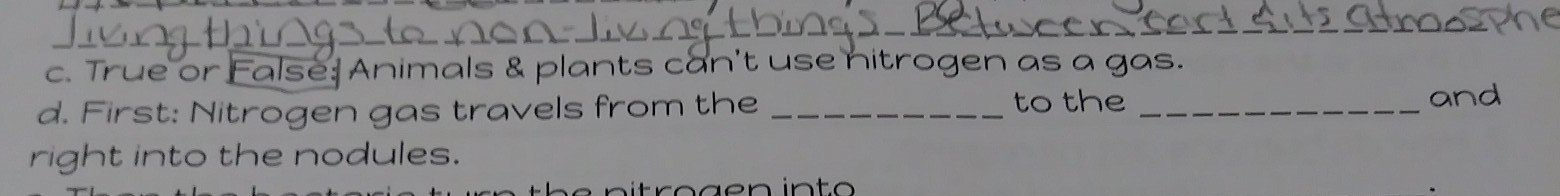 living things to non-living things Between earth & its atmosphe
c. True or False: Animals & plants can't use nitrogen as a gas.
d. First: Nitrogen gas travels from the _________ to the ___________ and
right into the nodules.
the nitrogen into